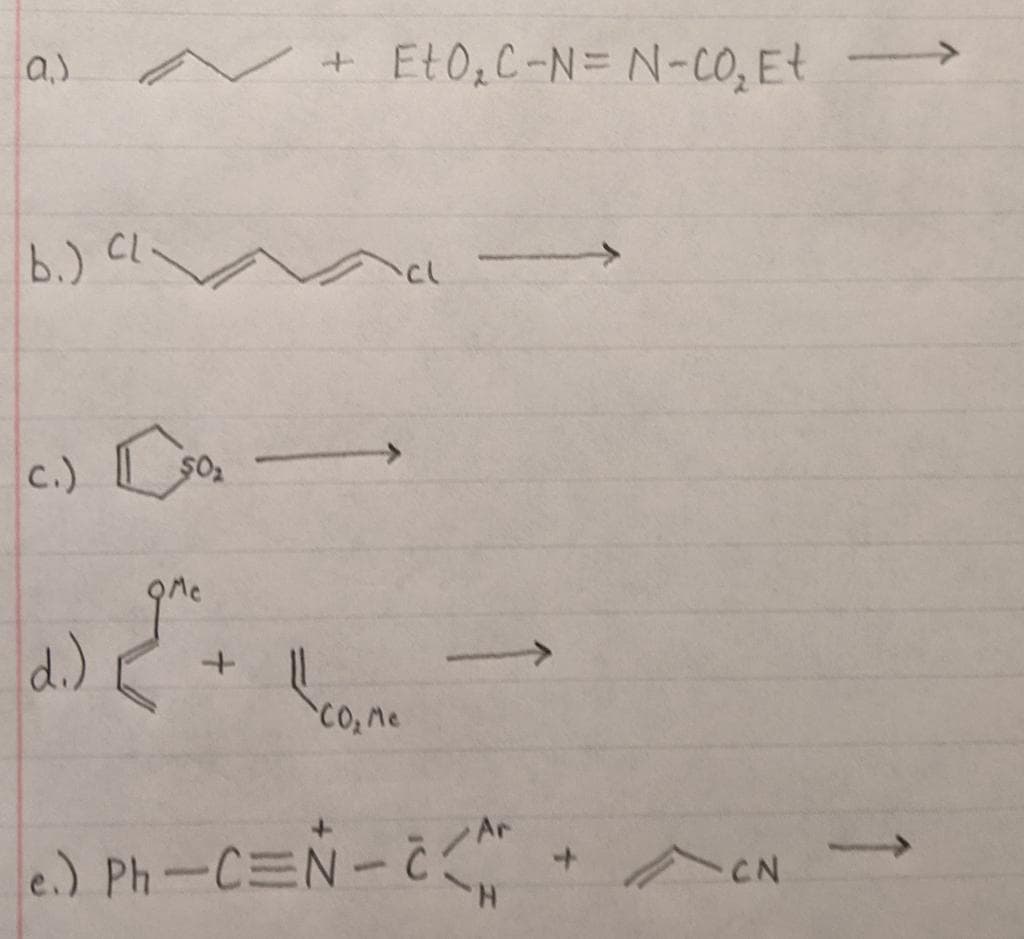 a.) + EtO₂C-N=N-CO₂Et ⟶
b.) Cl Cl ⟶
c.) SO₂ ⟶
OMe
d.) + CO₂Me ⟶
e.) Ph-C≡N⁺-C̄ Ar H + CN ⟶